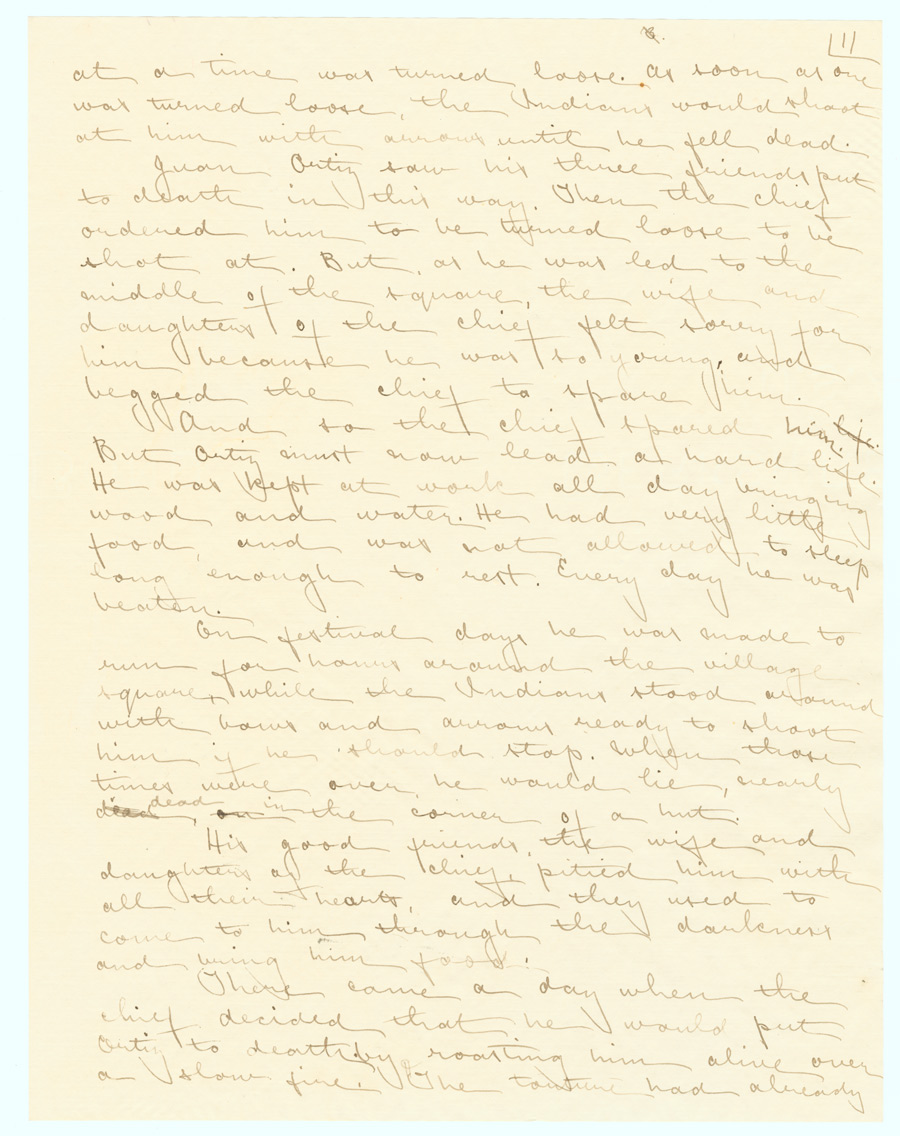 11
at a time was turned loose. As soon as one
was turned loose, the Indians would shoot
at him with arrows until he fell dead.
Juan Ortiz saw his three friends put
to death in this way. Then the chief
ordered him to be turned loose to be
shot at. But, as he was led to the
middle of the square, the wife and
daughters of the chief felt sorry for
him because he was so young, and
begged the chief to spare him.
And so the chief spared him life.
But Ortiz must now lead a hard life.
He was kept at work all day bringing
wood and water. He had very little
food, and was not allowed to sleep
long enough to rest. Every day he was
beaten.
On festival days he was made to
run for hours around the village
square, while the Indians stood around
with bows and arrows ready to shoot
him if he should stop. When those
times were over, he would lie, nearly
dead dead, on in the corner of a hut.
His good friends, the wife and
daughters of the chief, pitied him with
all their hearts, and they used to
come to him through the darkness
and bring him food.
There came a day when the
chief decided that he would put
Ortiz to death by roasting him alive over
a slow fire. The torture had already